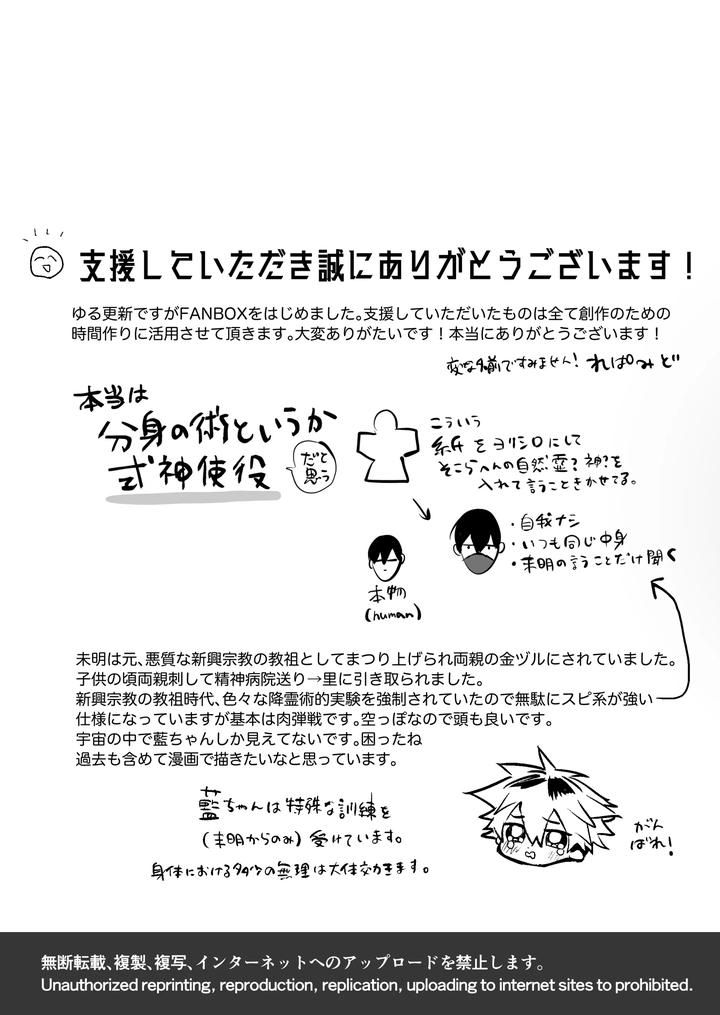 支援していただき誠にありがとうございます！
ゆる更新ですがFANBOXをはじめました。支援していただいたものは全て創作のための
時間作りに活用させて頂きます。大変ありがたいです！本当にありがとうございます！
変な名前ですみません! れぱみど
本当は
分身の術というか
式神使役
だと
思う
こういう
紙をヨリシロにして
そこらへんの自然霊?神?を
入れて言うこときかせてる。
・自我ナシ
・いつも同じ中身
・未明の言うことだけ聞く
本物
(human)
未明は元、悪質な新興宗教の教祖としてまつり上げられ両親の金ヅルにされていました。
子供の頃両親刺して精神病院送り→里に引き取られました。
新興宗教の教祖時代、色々な降霊術的実験を強制されていたので無駄にスピ系が強い
仕様になっていますが基本は肉弾戦です。空っぽなので頭も良いです。
宇宙の中で藍ちゃんしか見えてないです。困ったね
過去も含めて漫画で描きたいなと思っています。
藍ちゃんは特殊な訓練を
(未明からのみ)受けています。
身体における多少の無理は大体効きます。
がん
ばれ!
無断転載、複製、複写、インターネットへのアップロードを禁止します。
Unauthorized reprinting, reproduction, replication, uploading to internet sites to prohibited.